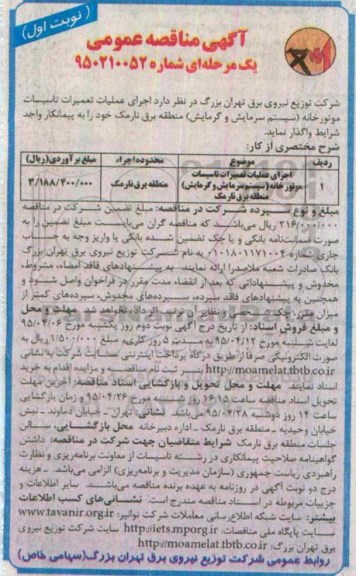 ( نوبت اول )
آگهی مناقصه عمومی
یک مرحله‌ای شماره ۹۵۰۲۱۰۰۵۲
شرکت توزیع نیروی برق تهران بزرگ در نظر دارد اجرای عملیات تعمیرات تاسیسات
موتورخانه (سیستم سرمایش و گرمایش) منطقه برق نارمک خود را به پیمانکار واجد
شرایط واگذار نماید.
شرح مختصری از کار:
ردیف موضوع محدوده اجراء مبلغ برآوردی(ریال)
۱ اجرای عملیات تعمیرات تاسیسات موتورخانه (سیستم سرمایش و گرمایش) منطقه برق نارمک منطقه برق نارمک ۳/۱۸۸/۴۰۰/۰۰۰
مبلغ و نوع سپرده شرکت در مناقصه: مبلغ تضمین شرکت در مناقصه
۲۱۶/۰۰۰/۰۰۰ ریال می‌باشد که مناقصه گران می‌بایست مبلغ تضمین را به
صورت ضمانت‌نامه بانکی و یا چک تضمین شده بانکی یا واریز وجه به حساب
جاری شماره ۰۱۰۱۸۰۱۱۷۱۰۰۴ به نام شرکت توزیع نیروی برق تهران بزرگ
بانک صادرات شعبه ملاصدرا ارائه نمایند. به پیشنهادهای فاقد امضاء، مشروط،
مخدوش و پیشنهاداتی که بعد از انقضاء مدت مقرر در فراخوان واصل شود و
همچنین به پیشنهادهای فاقد سپرده، سپرده‌های مخدوش، سپرده‌های کمتر از
میزان مقرر، چک شخصی و نظایر آن ترتیب اثر داده نخواهد شد. مهلت و محل
و مبلغ فروش اسناد: از تاریخ درج آگهی نوبت دوم روز یکشنبه مورخ ۹۵/۰۴/۰۶
لغایت شنبه مورخ ۹۵/۰۴/۱۲ به مدت ۵ روز کاری، مبلغ ۱/۵۰۰/۰۰۰ ریال به
صورت الکترونیکی صرفاً از طریق درگاه پرداخت اینترنتی سایت شرکت به نشانی
http://moamelat.tbtb.co.ir نسبت ثبت نام مناقصه و مزایده اقدام به خرید
اسناد نمایند. مهلت و محل تحویل و بازگشایی اسناد مناقصه: آخرین مهلت
تحویل اسناد مناقصه ساعت ۱۶:۱۵ روز شنبه مورخ ۹۵/۰۴/۲۶ و زمان بازگشایی
ساعت ۱۴ روز دوشنبه ۹۵/۰۴/۲۸ می‌باشد. نشانی: تهران - خیابان دماوند - نبش
خیابان وحیدیه - منطقه برق نارمک - اداره دبیرخانه محل بازگشایی: سالن
جلسات منطقه برق نارمک شرایط متقاضیان جهت شرکت در مناقصه: داشتن
گواهینامه صلاحیت پیمانکاری در رشته تاسیسات از معاونت برنامه‌ریزی و نظارت
راهبردی ریاست جمهوری (سازمان مدیریت و برنامه‌ریزی) الزامی می‌باشد. - هزینه
درج دو نوبت آگهی در روزنامه به عهده برنده مناقصه می‌باشد. سایر اطلاعات و
جزییات مربوطه در اسناد مناقصه مندرج است. نشانی‌های کسب اطلاعات
بیشتر: سایت شبکه اطلاع‌رسانی معاملات شرکت توانیر: www.tavanir.org.ir
سایت پایگاه ملی مناقصات: http://iets.mporg.ir سایت شرکت توزیع نیروی
برق تهران بزرگ: http://moamelat.tbtb.co.ir
روابط عمومی شرکت توزیع نیروی برق تهران بزرگ(سهامی خاص)